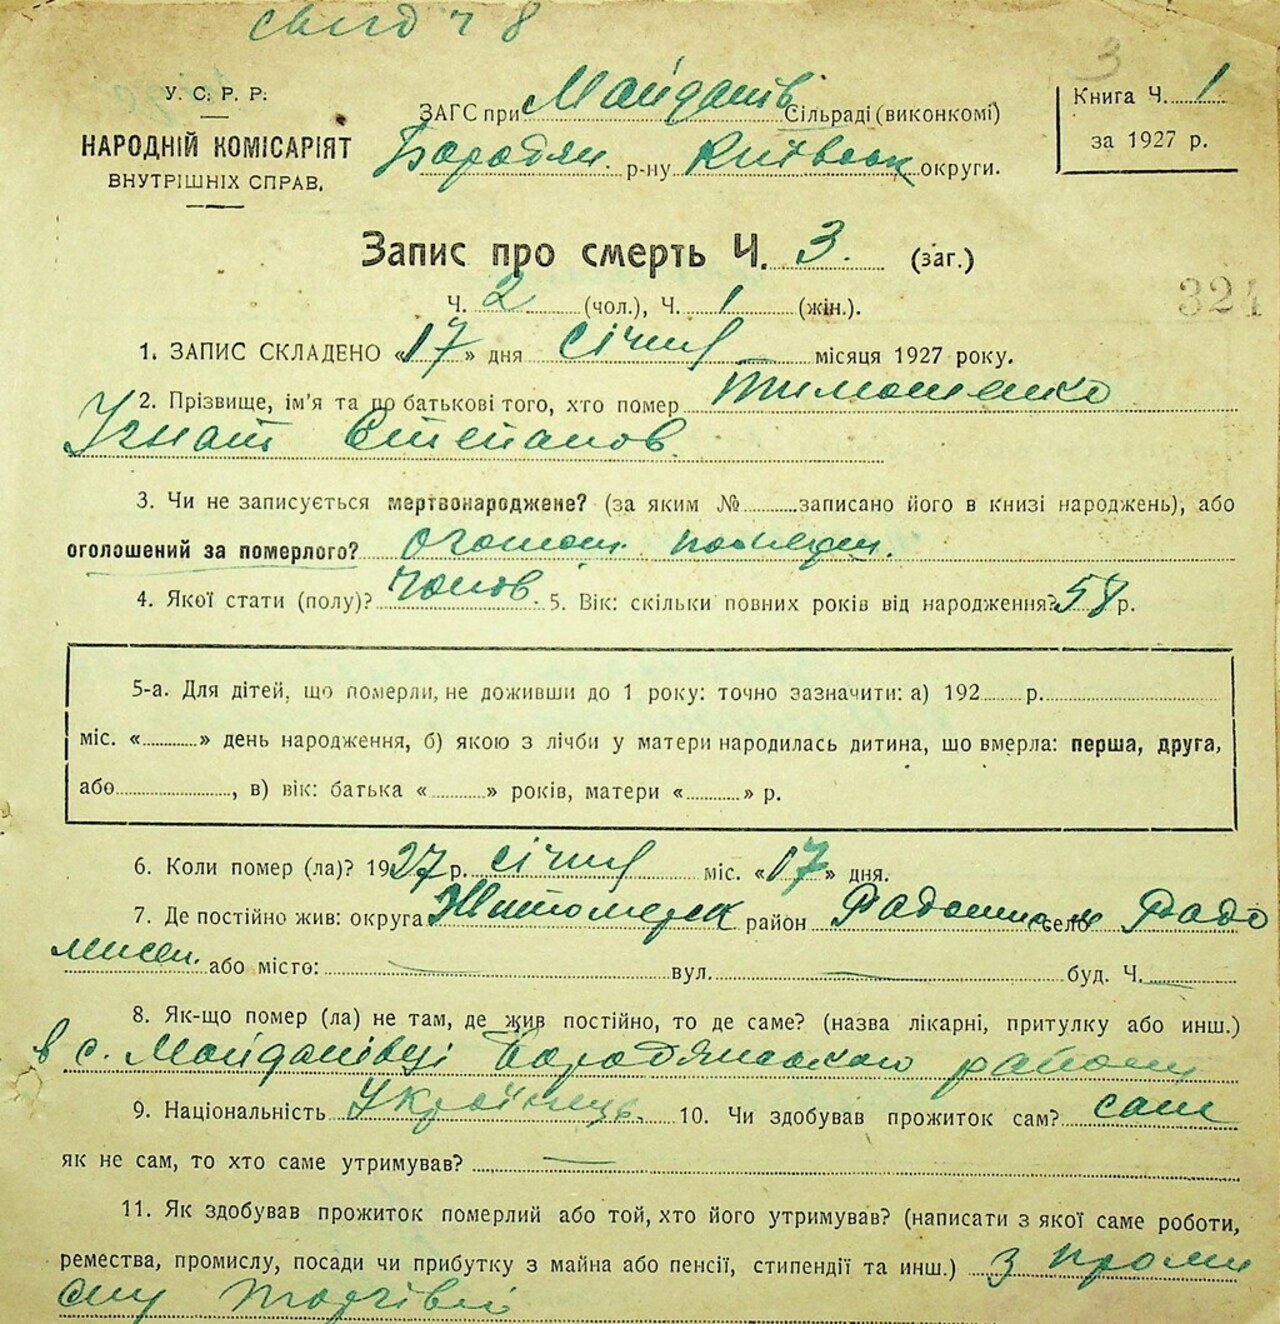 свид ч 8
3
У. С. Р. Р.
НАРОДНІЙ КОМІСАРІЯТ
ВНУТРІШНІХ СПРАВ.
ЗАГС при Майданів Сільраді (виконкомі)
Бородян. р-ну Київськ округи.
Книга Ч. 1
за 1927 р.
Запис про смерть Ч. 3. (заг.)
Ч. 2 (чол.), Ч. 1 (жін.).
324
1. ЗАПИС СКЛАДЕНО «17» дня січня місяця 1927 року.
2. Прізвище, ім'я та по батькові того, хто помер Тимошенко
Игнат Степанов
3. Чи не записується мертвонароджене? (за яким № записано його в книзі народжень), або
оголошений за померлого?
4. Якої стати (полу)? чолов. 5. Вік: скільки повних років від народження? 58 р.
5-а. Для дітей, що померли, не доживши до 1 року: точно зазначити: а) 192 р.
міс. « » день народження, б) якою з лічби у матери народилась дитина, що вмерла: перша, друга,
або , в) вік: батька « » років, матери « » р.
6. Коли помер (ла)? 1927 р. січня міс. «17» дня.
7. Де постійно жив: округа Житомирск район Радомисл село Радо
мисел. або місто: — вул. — буд. Ч. —
8. Як-що помер (ла) не там, де жив постійно, то де саме? (назва лікарні, притулку або инш.)
в с. Майданівці Бородянського району
9. Національність Українець. 10. Чи здобував прожиток сам? сам
як не сам, то хто саме утримував? —
11. Як здобував прожиток померлий або той, хто його утримував? (написати з якої саме роботи,
ремества, промислу, посади чи прибутку з майна або пенсії, стипендії та инш.) з проми
слу торгівлі